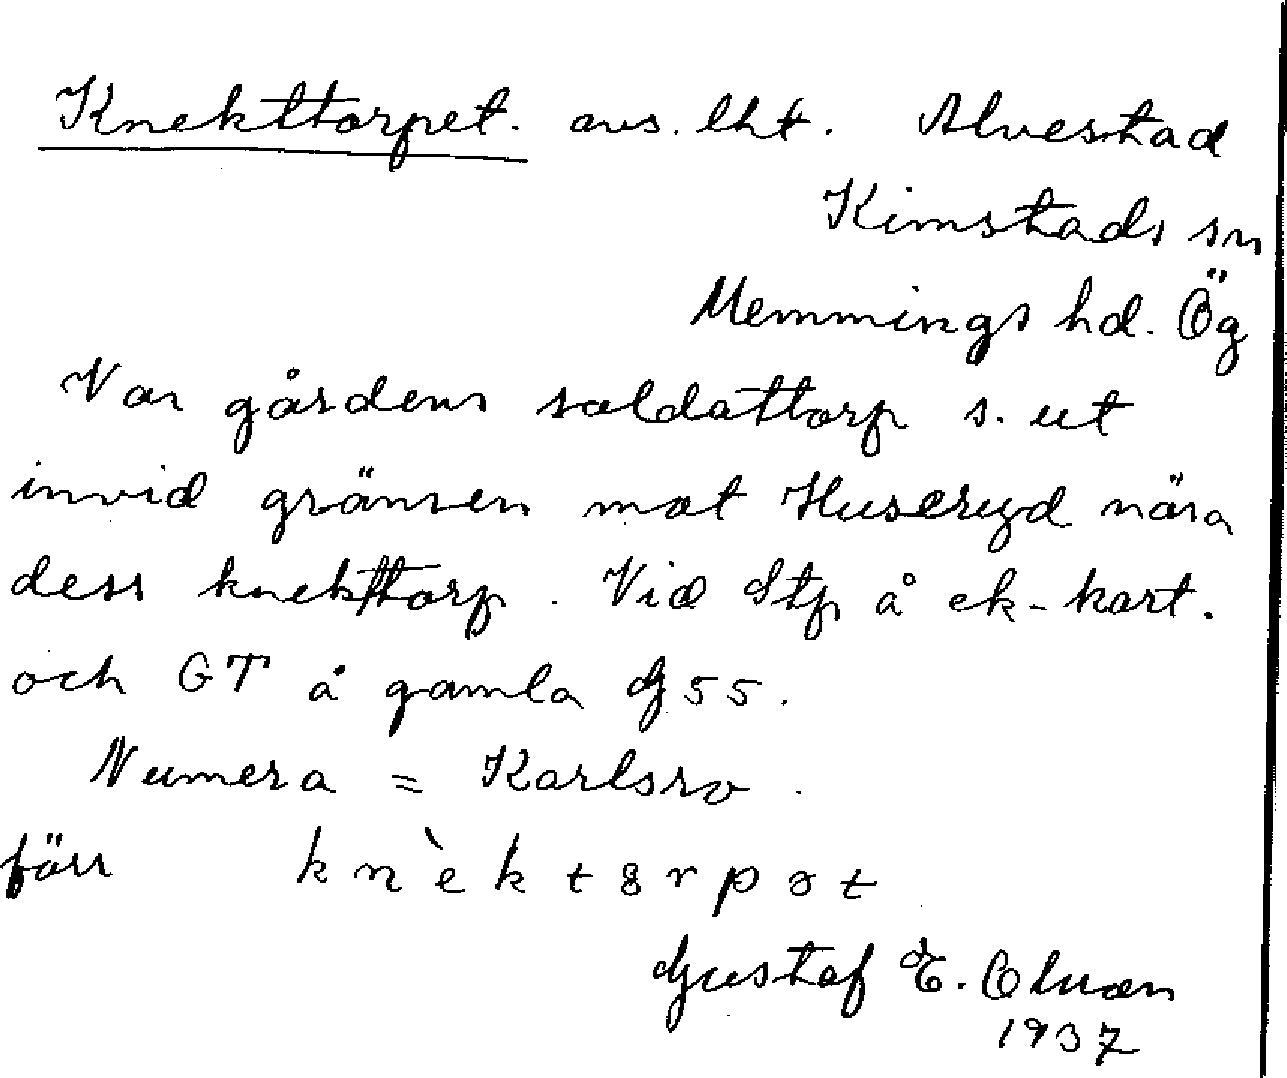 Knekttorpet. avs. lht. Alvestad
Kimstads sn
Memmings hd. Ög
Var gårdens soldattorp s. ut
invid gränsen mot Huseryd nära
dess knekttorp. Vid Stp å ek-kart.
och GT å gamla G 55.
Numera = Karlsro.
förr knὲktȣrpət
Gustaf E. Olson
1937